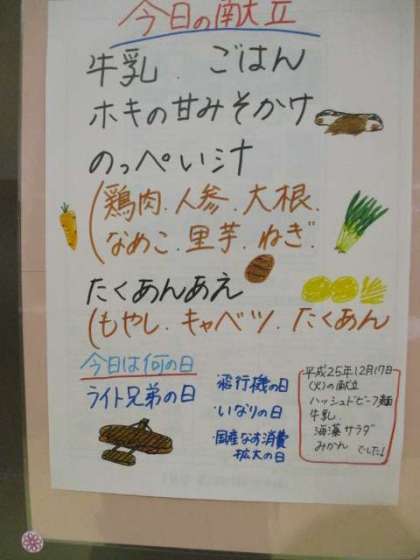 今日の献立
牛乳．ごはん
ホキの甘みそかけ
のっぺい汁
(鶏肉．人参．大根．
なめこ．里芋．ねぎ．
たくあんあえ
(もやし．キャベツ．たくあん
今日は何の日
ライト兄弟の日
・飛行機の日
・いなりの日
・国産なす消費
拡大の日
平成25年12月17日
(火)の献立
ハッシュドビーフ麺
牛乳．
海藻サラダ
みかん でした！